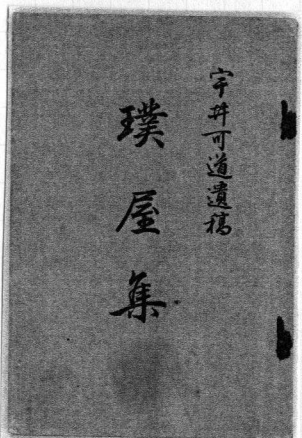 宇井可道遺稿
璞屋集